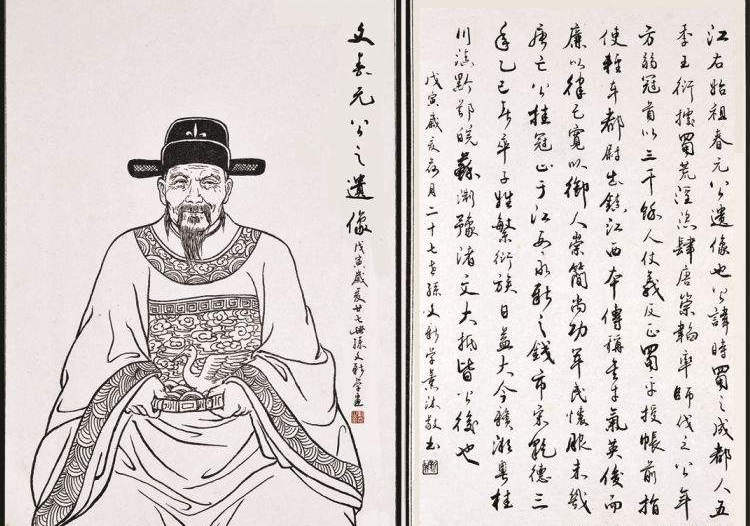 江右始祖春元公遺像也公諱時蜀之成都人五
季王衍據蜀荒淫恣肆唐崇韜率師伐之公年
方弱冠首以三千餘人仗義反正蜀平授帳前指
使輕車都尉出鎮江西本傳稱生平氣英俊而
廉以律己寬以御人崇簡尚功軍民懷服未幾
唐亡公挂冠止于江西永新之錢市宋乾德三
年乙巳春卒子姓繁衍族日益大今贛湘粵桂
川滇黔鄂皖蘇浙豫諸文大抵皆公後也
戊寅歲夏月二十七世孫文新学薰沐敬书
文春元公之遺像
戊寅歲夏廿七世孫文新学画